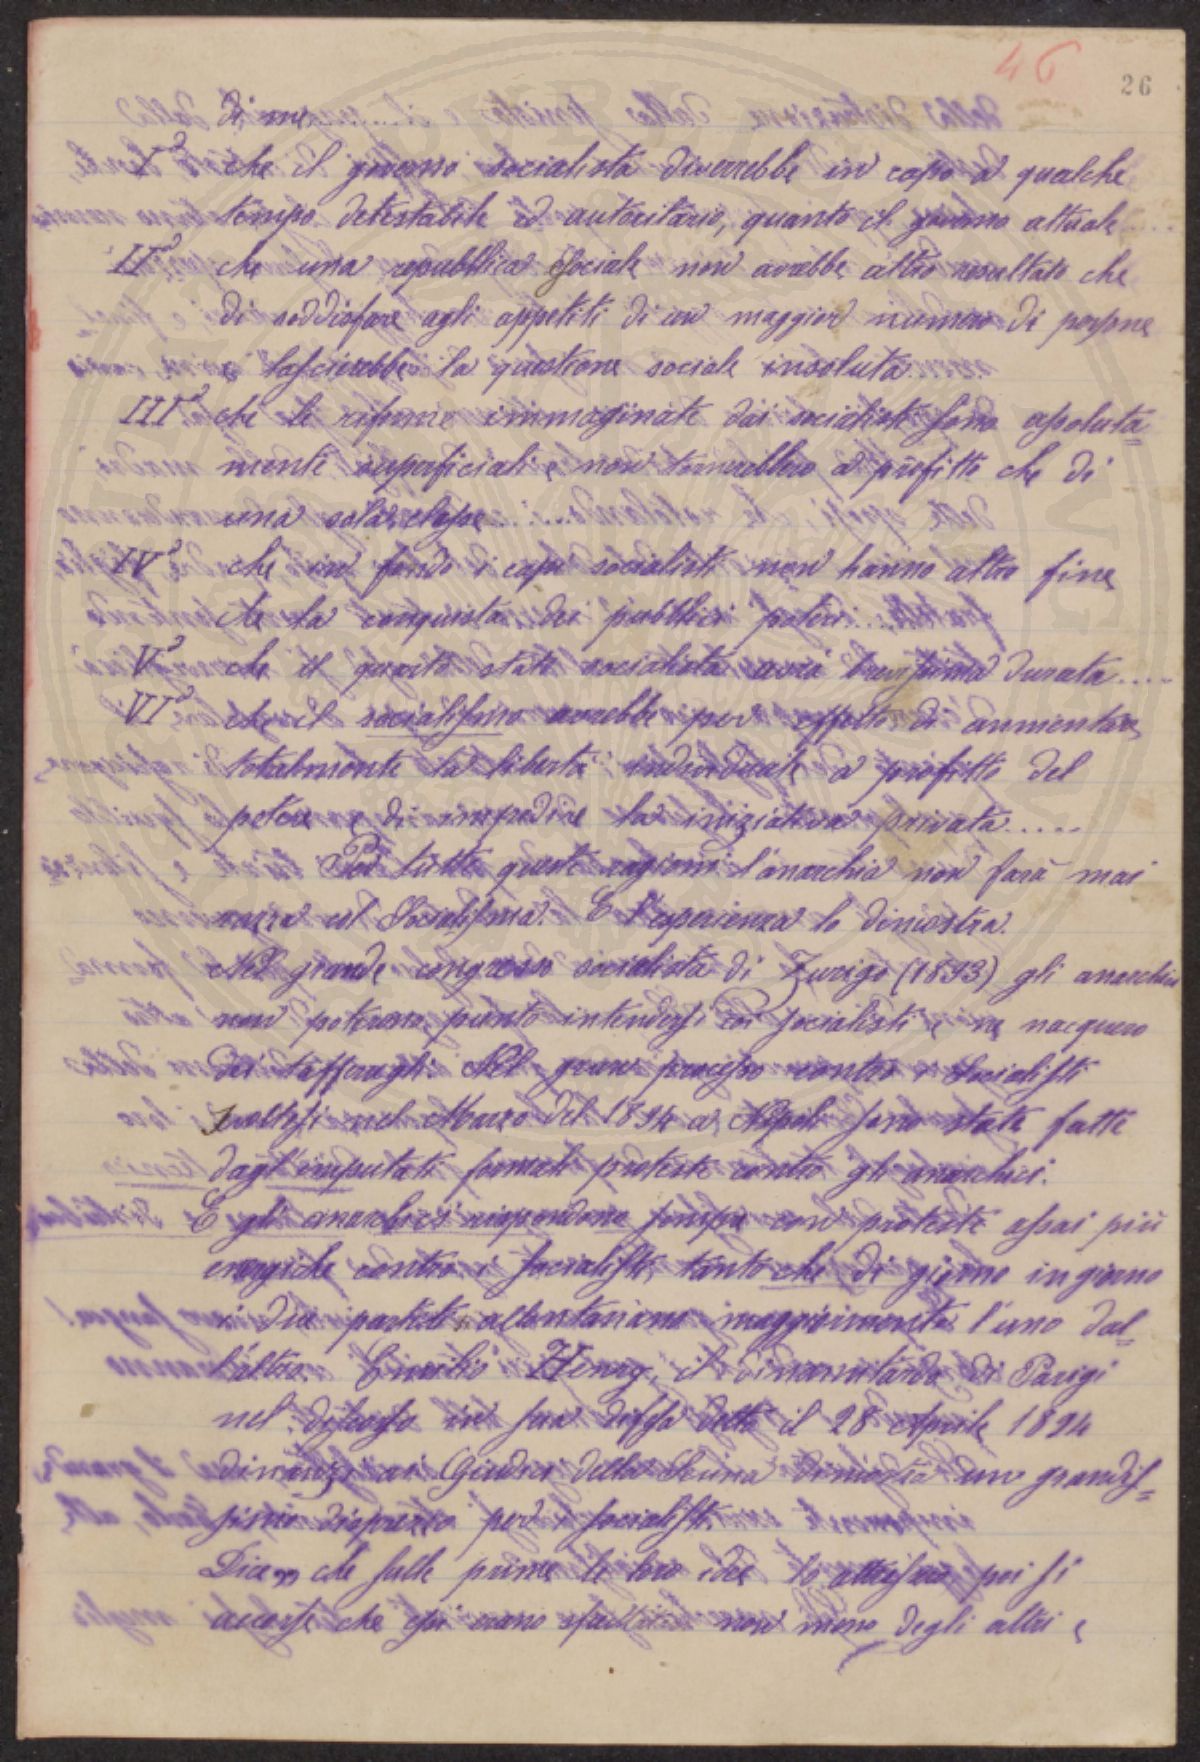 46
26
di me..........
I° che il governo socialista diverrebbe in capo a qualche
tempo detestabile ed autoritario, quanto il governo attuale....
II° che una repubblica sociale non avrebbe altro resultato che
di soddisfare agli appetiti di un maggior numero di persone
e lascierebbe la questione sociale insoluta.....
III° che le riforme immaginate dai socialisti sono assoluta=
mente superficiali e non tornerebbero a profitto che di
una sola classe......
IV° che in fondo i capi socialisti non hanno altro fine
che la conquista dei pubblici poteri....
V° che il quarto stato socialista avrà brevissima durata.....
VI° che il socialismo avrebbe per effetto di
totalmente la libertà individuale a profitto del
potere e di impedire la iniziativa privata.....
Per tutte queste ragioni l'anarchia non farà mai
razza col Socialismo. E l'esperienza lo dimostra.
Nel grande congresso socialista di Zurigo (1893) gli anarchici
non poterono punto intendersi coi socialisti e ne nacquero
dei tafferugli. Nel grave processo contro i Socialisti
svoltosi nel Marzo del 1894 a Napoli sono state fatte
dagl'imputati formali proteste contro gli anarchici.
E gli anarchici rispondono sempre con proteste assai più
energiche contro i socialisti, tanto che di giorno in giorno
i due partiti allontanano maggiormente l'uno dal=
l'altro. Emilio Henry, il dinamitardo di Parigi
nel discorso in sua difesa detto il 28 Aprile 1894
dinanzi ai Giudici della Senna dimostra un grandis=
simo disprezzo per i socialisti.
Dice„ che sulle prime le loro idee lo poi si
accorse che essi erano non meno degli altri e